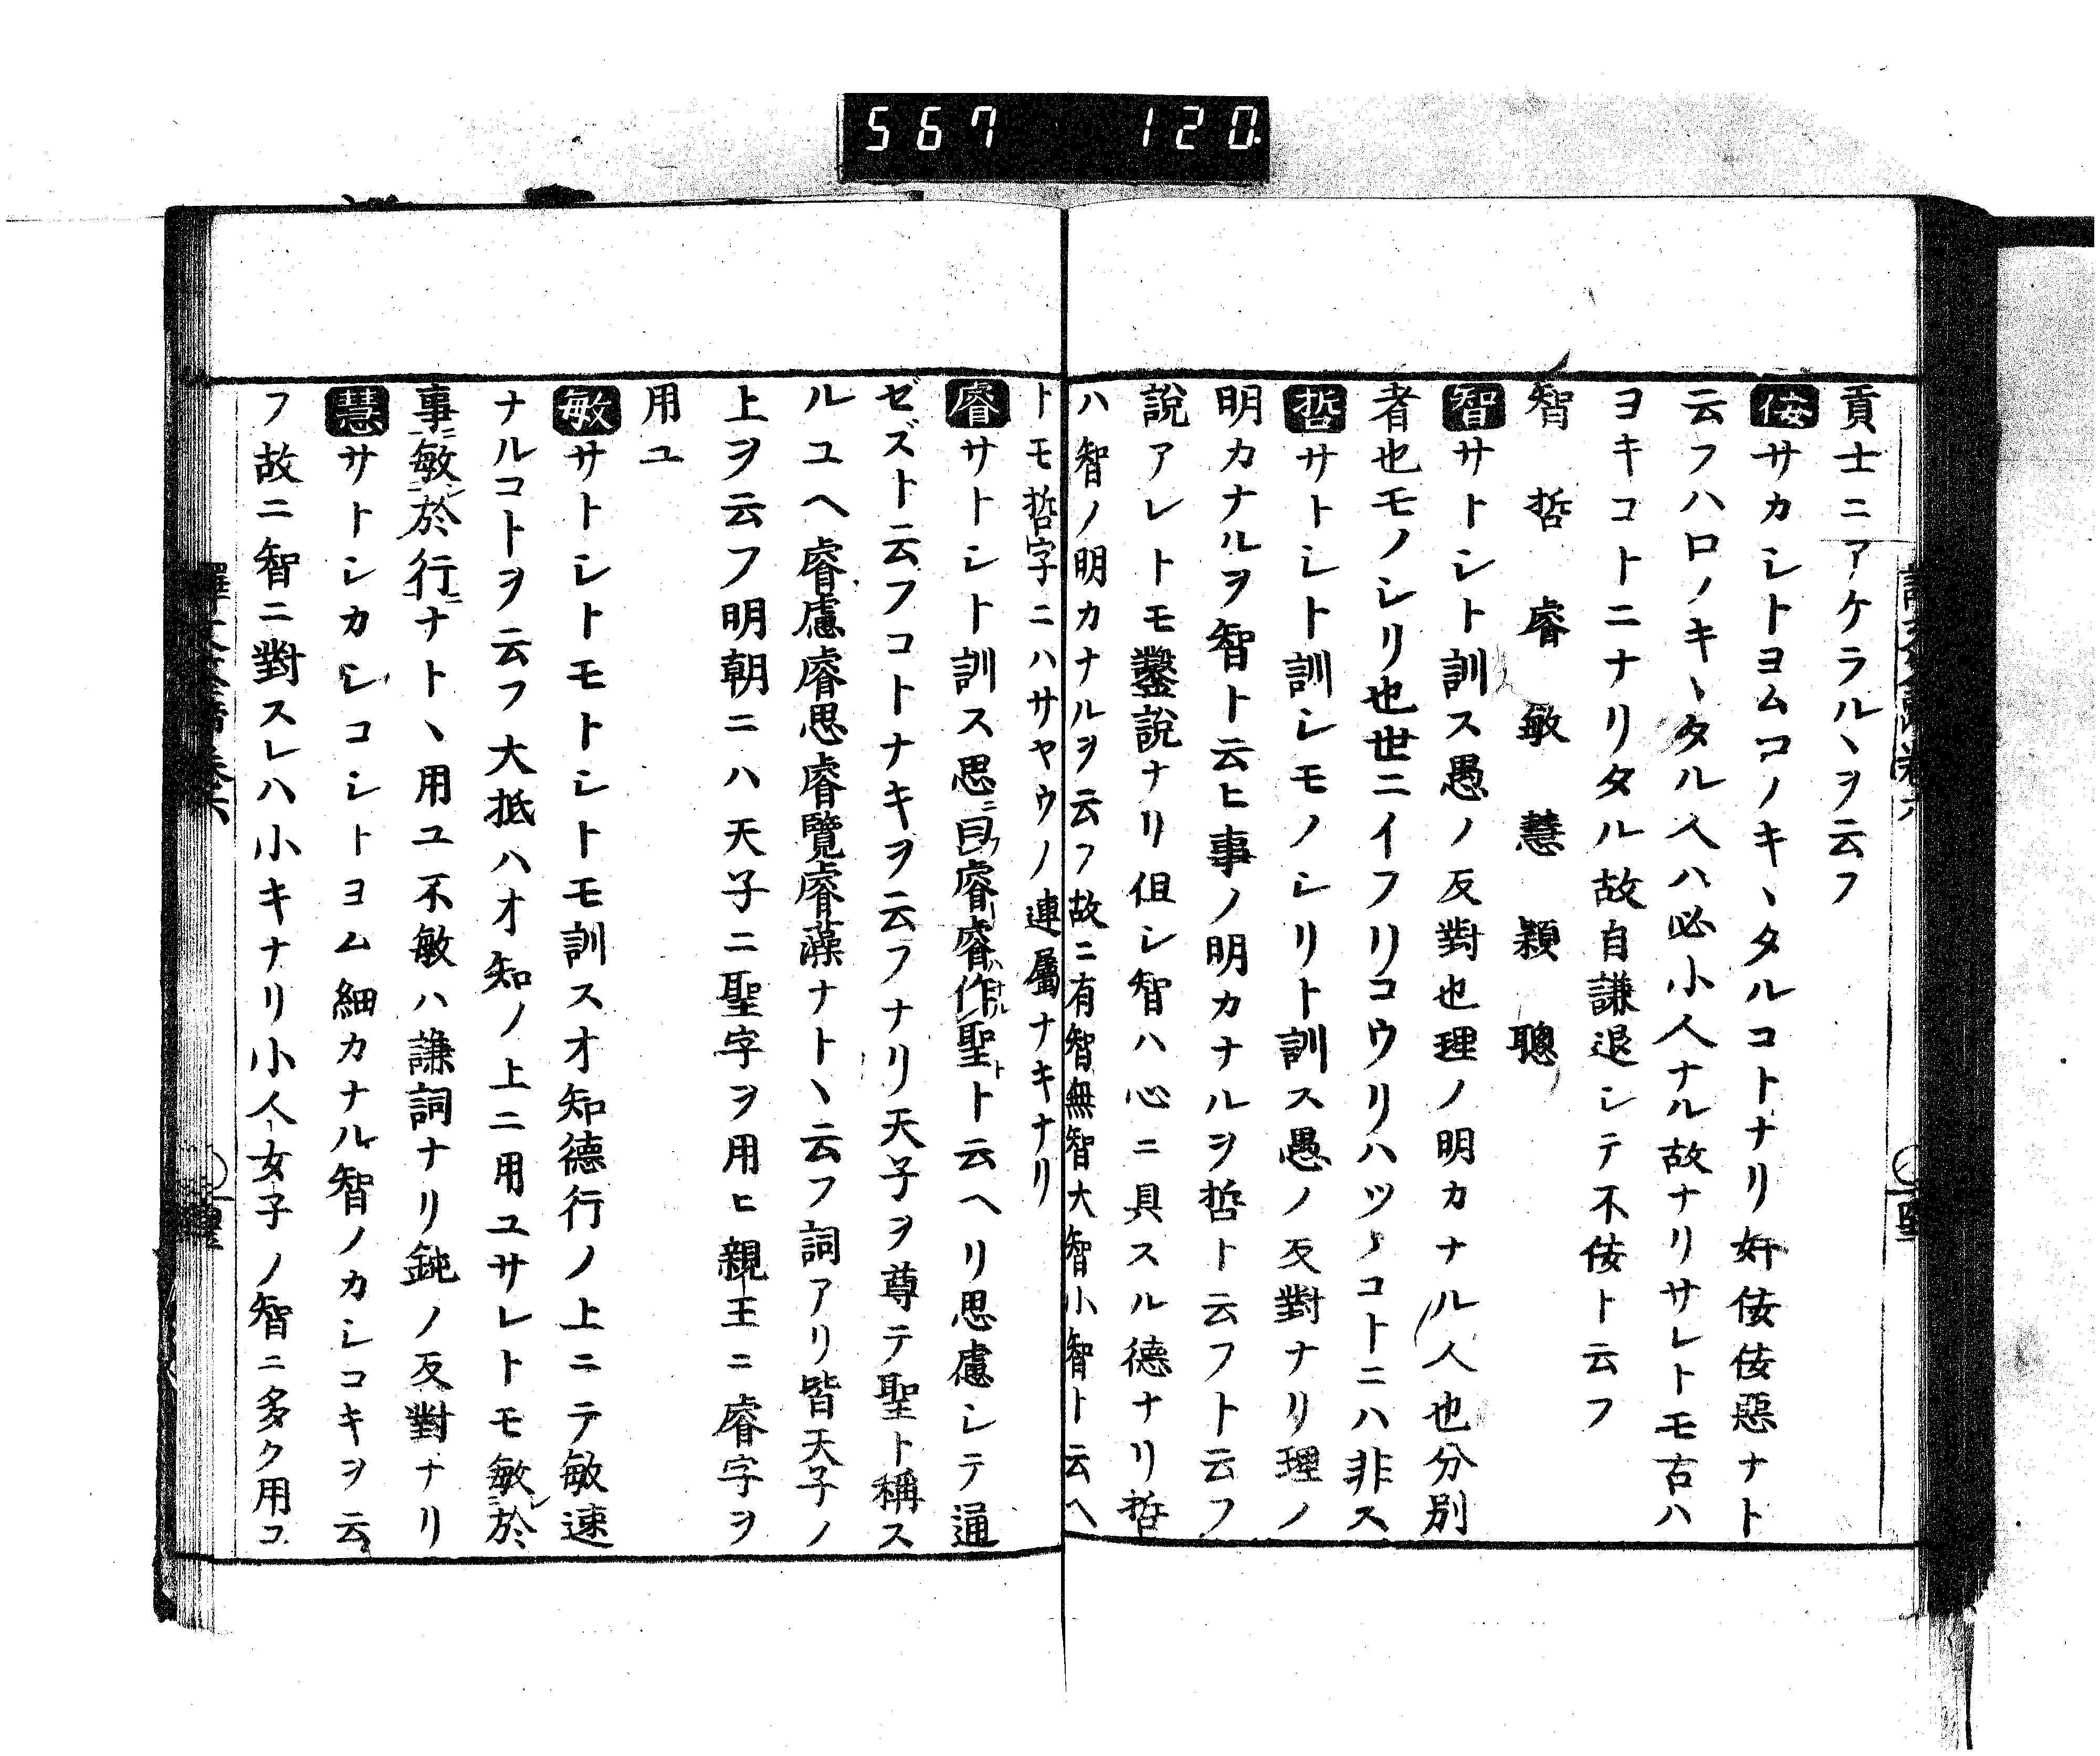 567 120.
貢士ニアケラルヽヲ云フ
佞サカシトヨムコノキヽタルコトナリ奸佞佞惡ナト
云フハ口ノキヽタル人ハ必小人ナル故ナリサレトモ古ハ
ヨキコトニナリタル故自謙退シテ不佞ト云フ
智 哲 睿 敏 慧 穎 聰
智サトシト訓ス愚ノ反對也理ノ明カナル人也分別
者也モノシリ也世ニイフリコウリハツノコトニハ非ス
哲サトシト訓シモノシリト訓ス愚ノ反對ナリ理ノ
明カナルヲ智ト云ヒ事ノ明カナルヲ哲ト云フト云フ
說アレトモ鑿說ナリ但シ智ハ心ニ具スル德ナリ哲
ハ智ノ明カナルヲ云フ故ニ有智無智大智小智ト云ヘ
トモ哲字ニハサヤウノ連屬ナキナリ
睿サトシト訓ス思ニ曰フ睿睿作聖ト云ヘリ思慮シテ通
ゼズト云フコトナキヲ云フナリ天子ヲ尊テ聖ト稱ス
ルユヘ睿慮睿思睿覽睿藻ナトヽ云フ詞アリ皆天子ノ
上ヲ云フ明朝ニハ天子ニ聖字ヲ用ヒ親王ニ睿字ヲ
用ユ
敏サトシトモトシトモ訓ス才知德行ノ上ニテ敏速
ナルコトヲ云フ大抵ハ才知ノ上ニ用ユサレトモ敏於
事敏於行ナトヽ用ユ不敏ハ謙詞ナリ鈍ノ反對ナリ
慧サトシカシコシトヨム細カナル智ノカシコキヲ云
フ故ニ智ニ對スレハ小キナリ小人女子ノ智ニ多ク用コ